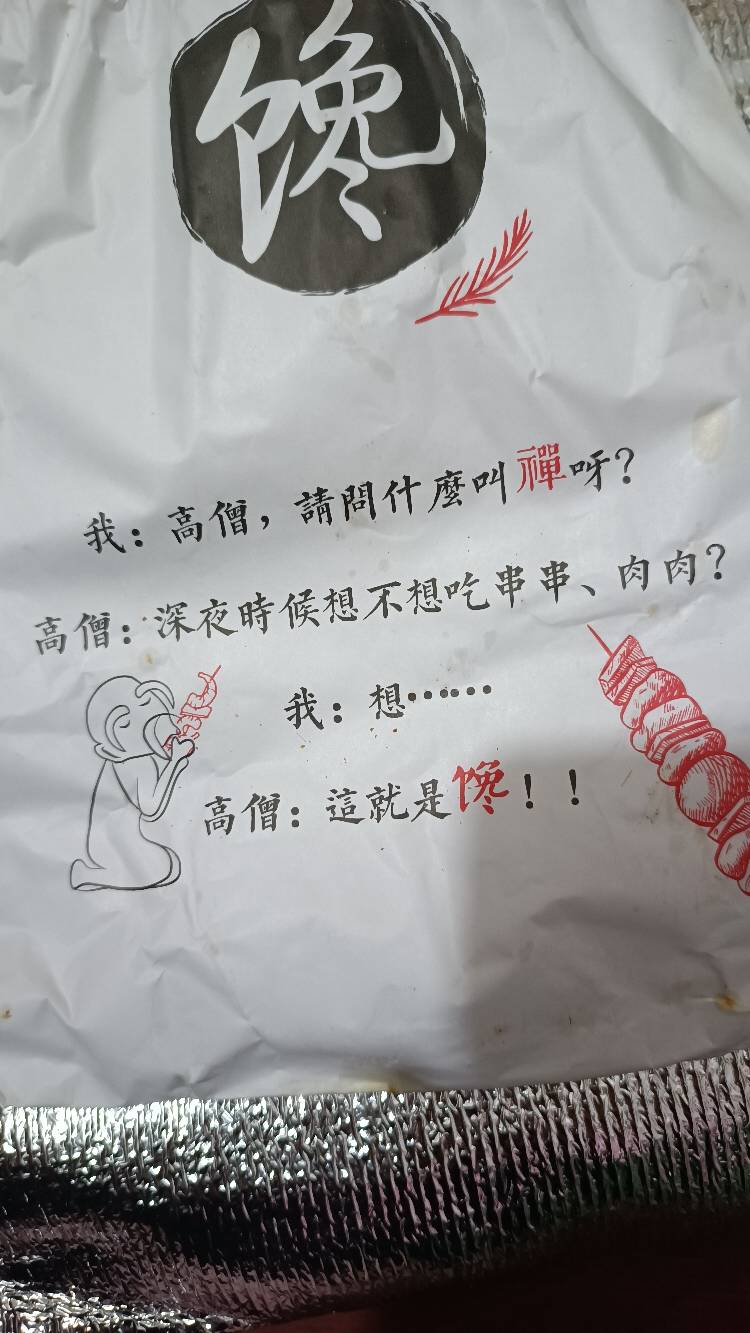 馋
我：高僧，請問什麼叫禪呀？
高僧：深夜時候想不想吃串串、肉肉？
我：想……
高僧：這就是馋！！